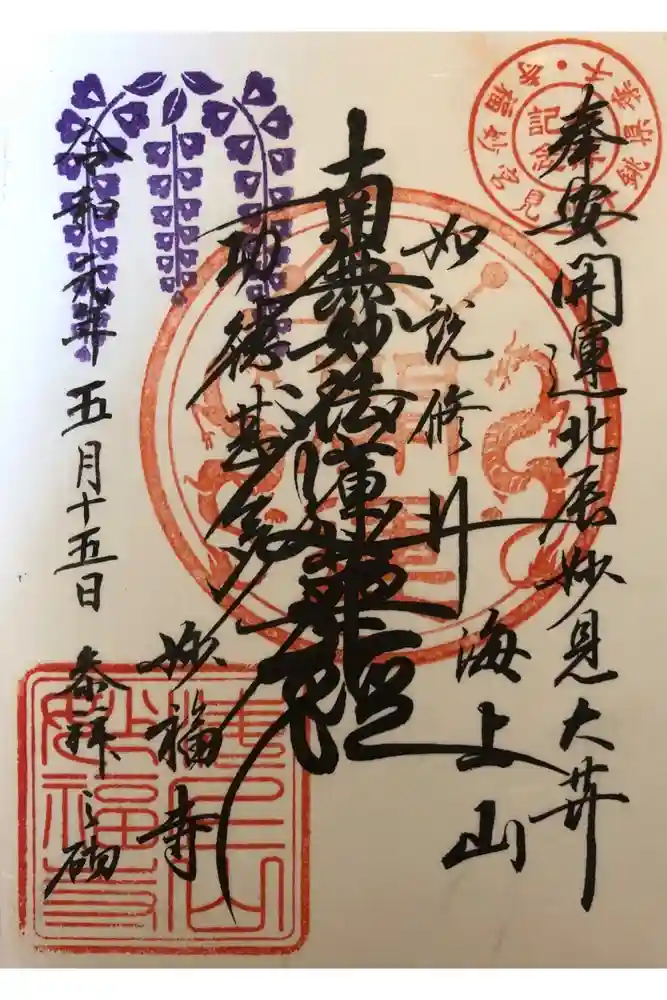 奉安開運北辰妙見大𦬇
如説修行
海上山
南無妙法蓮華経
功徳甚多
妙福寺
令和元年五月十五日 参拝之砌
記念
海上山
妙福寺